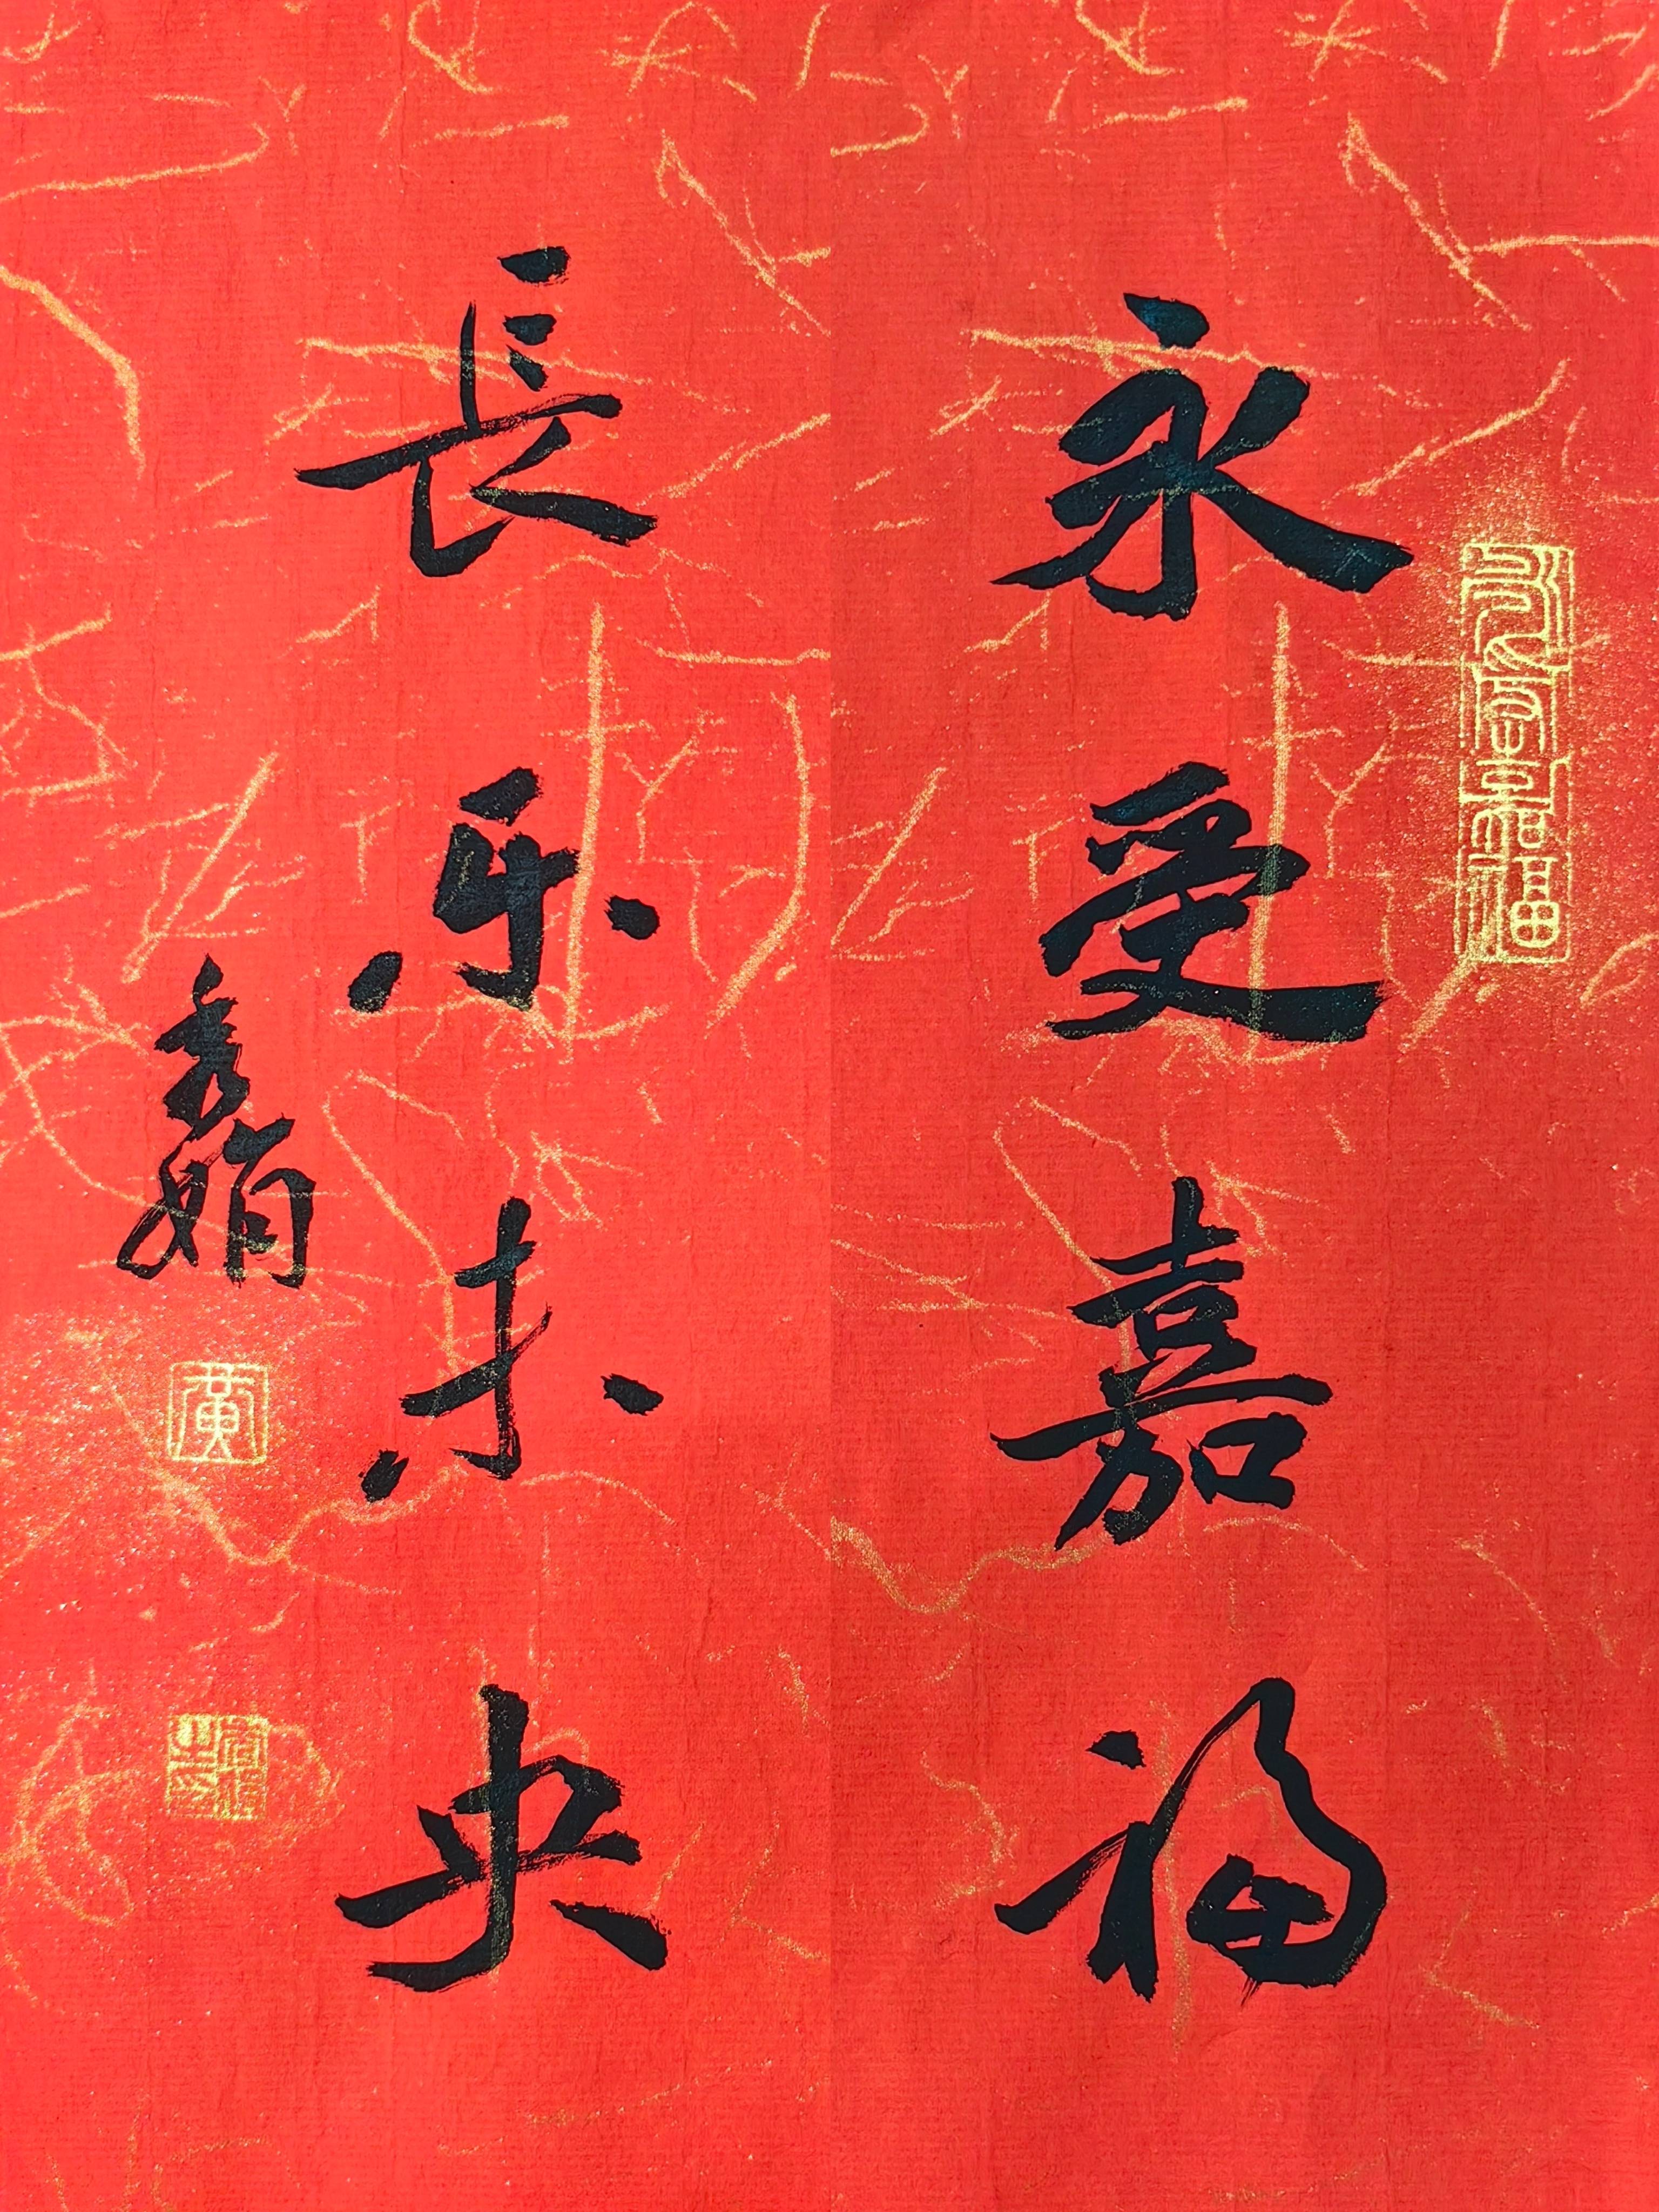 永受嘉福
永受嘉福
長乐未央
秀娟
黄